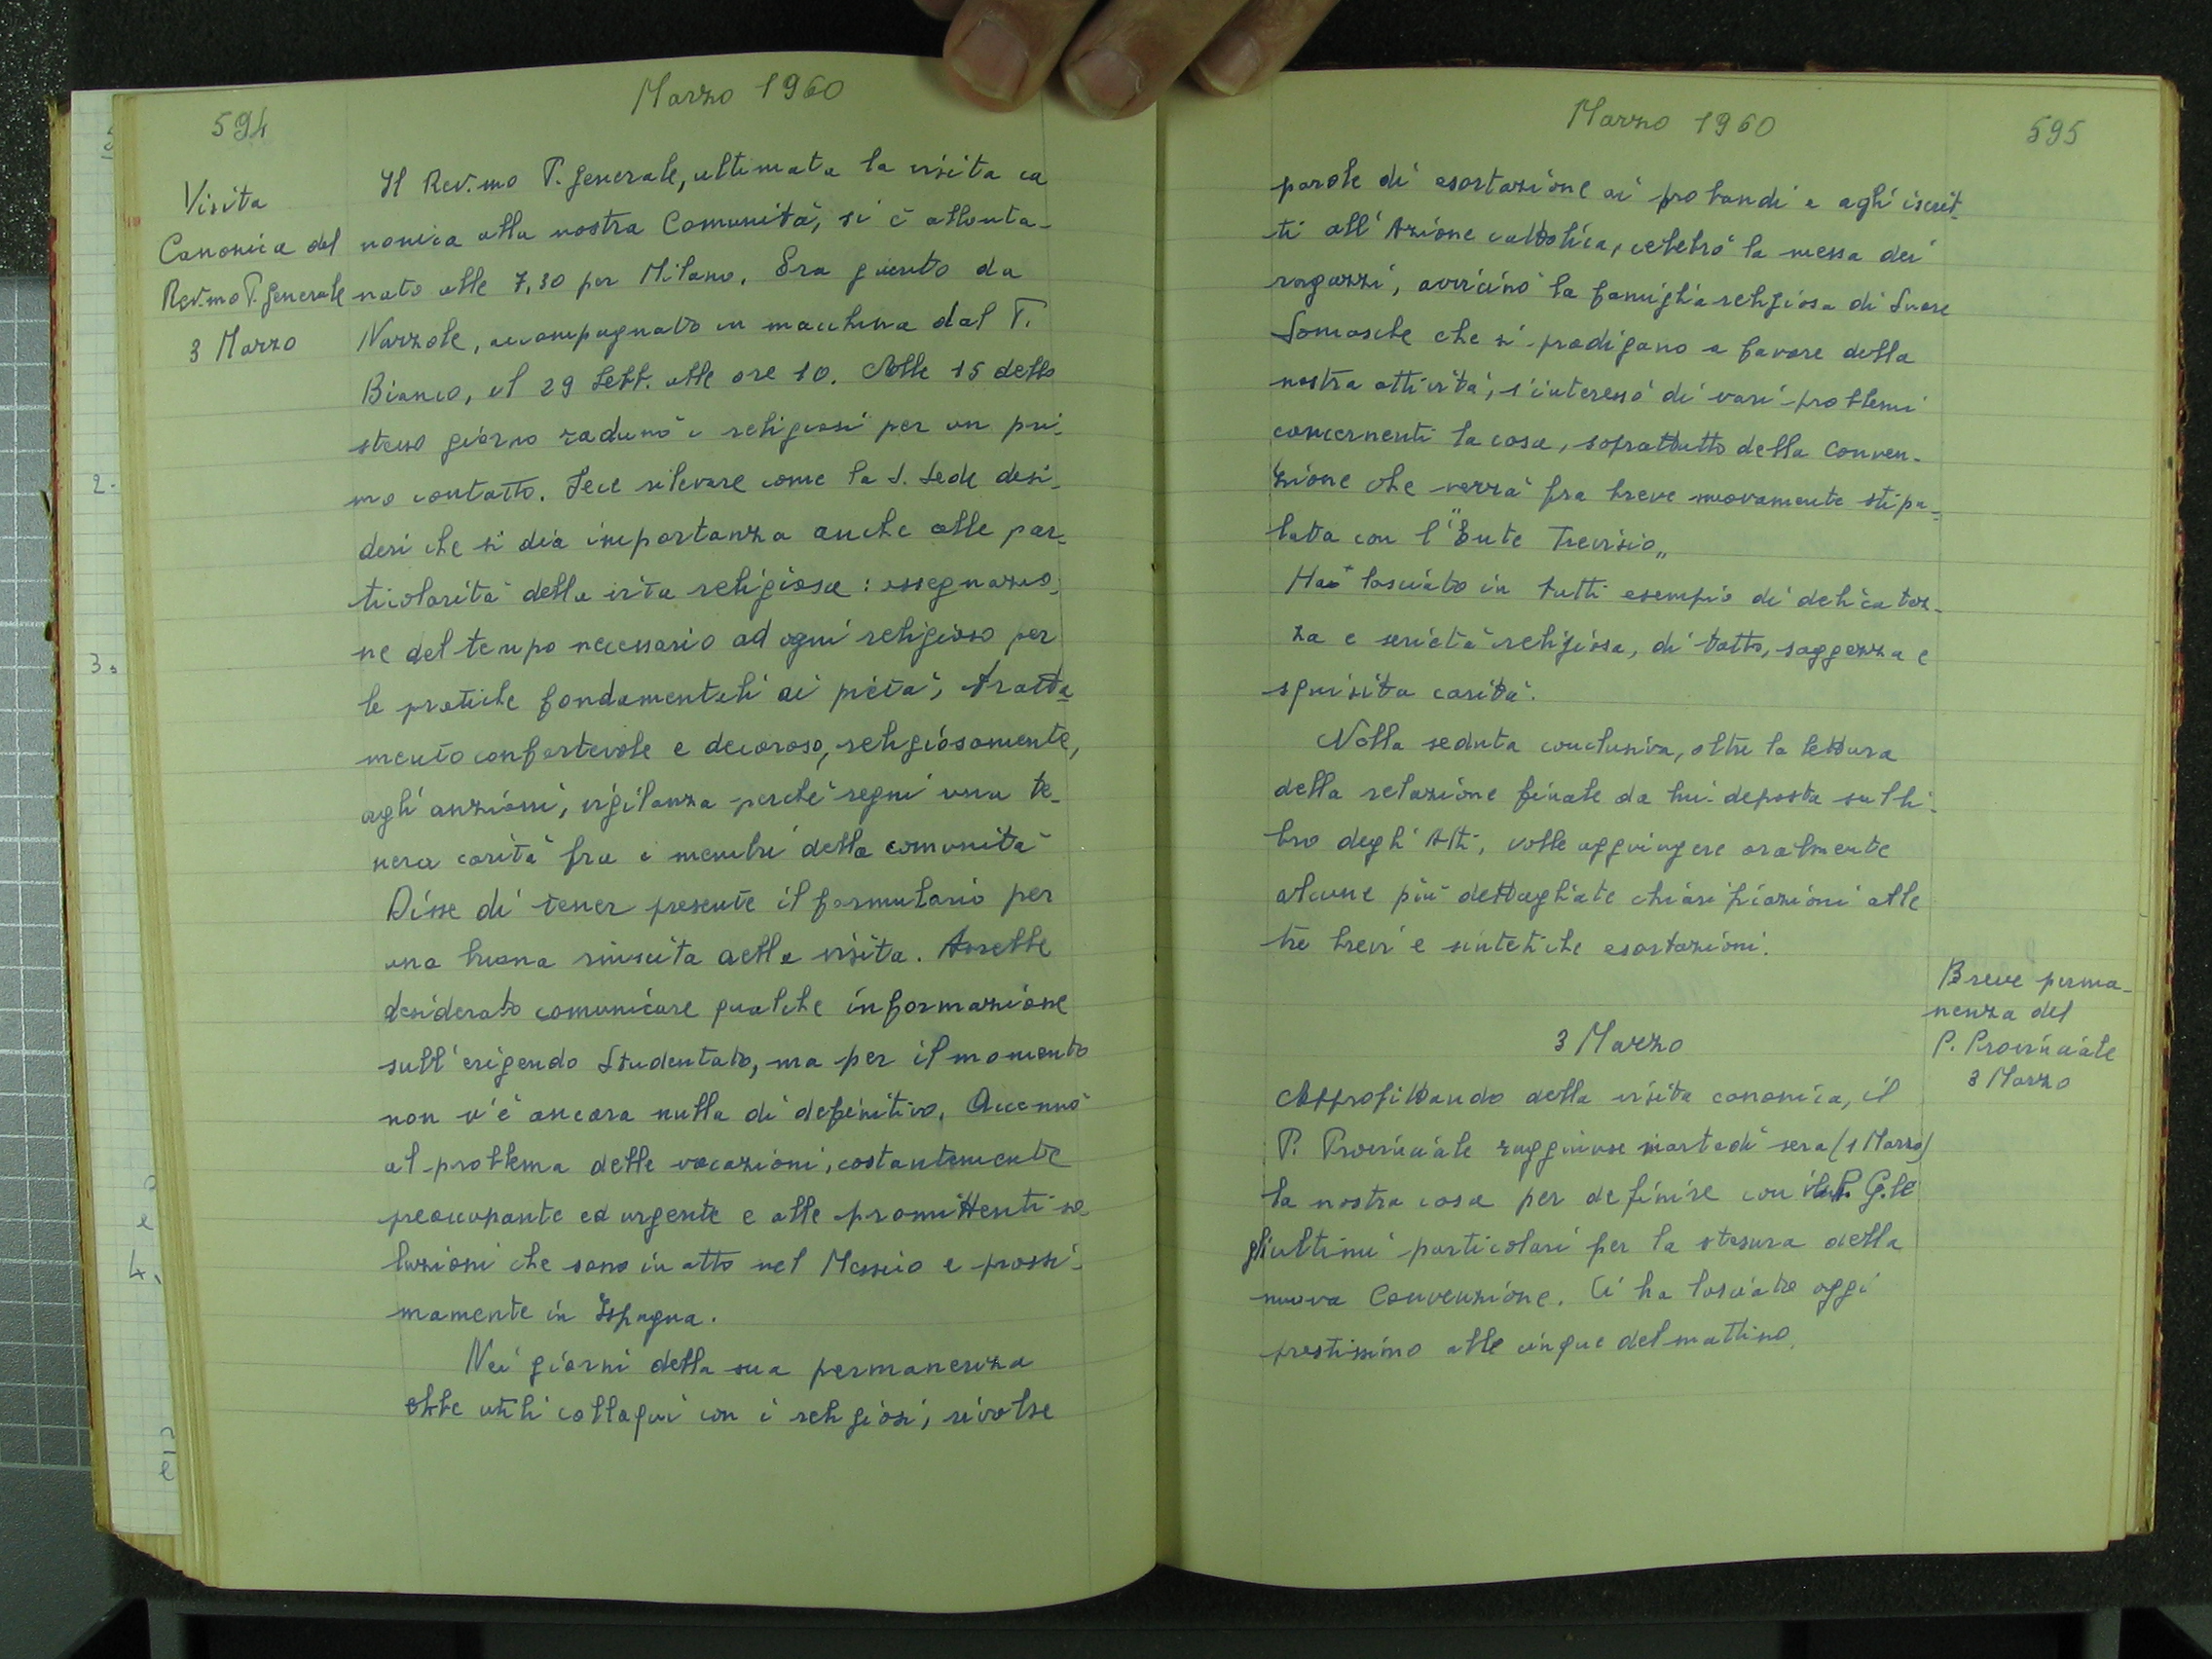 594
Marzo 1960
Visita
Canonica del
Rev.mo P. Generale
3 Marzo
Il Rev.mo P. Generale, ultimata la visita ca
nonica alla nostra Comunità, si è allonta-
nato alle 7,30 per Milano. Era giunto da
Narzole, accompagnato in macchina dal P.
Bianco, il 29 Febb. alle ore 10. Alle 15 dello
stesso giorno radunò i religiosi per un pri-
mo contatto. Fece rilevare come la S. Sede desi-
deri che si dia importanza anche alle par-
ticolarità della vita religiosa: assegnazio-
ne del tempo necessario ad ogni religioso per
le pratiche fondamentali di pietà, tratta-
mento confortevole e decoroso, religiosamente,
agli anziani, vigilanza perchè regni una te-
nera carità fra i membri della comunità
Disse di tener presente il formulario per
una buona riuscita della visita. Avrebbe
desiderato comunicare qualche informazione
sull'erigendo Studentato, ma per il momento
non v'è ancora nulla di definitivo. Accennò
al problema delle vocazioni, costantemente
preoccupante ed urgente e alle promittenti so
luzioni che sono in atto nel Messico e prossi-
mamente in Ispagna.
Nei giorni della sua permanenza
ebbe utili colloqui con i religiosi, rivolse
Marzo 1960
595
parole di esortazione ai probandi e agli iscrit-
ti all'Azione cattolica, celebrò la messa dei
ragazzi, avvicinò la famiglia religiosa di Suore
Somasche che si prodigano a favore della
nostra attività, s'interessò di vari problemi
concernenti la casa, soprattutto della Conven-
zione che verrà fra breve nuovamente stipu-
lata con l'"Ente Trevisio"
Ha lasciato in tutti esempio di delicatez-
za e serietà religiosa, di tatto, saggezza e
squisita carità.
Nella seduta conclusiva, oltre la lettura
della relazione finale da lui deposta sul li-
bro degli Atti, volle aggiungere oralmente
alcune più dettagliate chiarificazioni alle
tre brevi e sintetiche esortazioni.
Breve perma-
nenza del
P. Provinciale
3 Marzo
3 Marzo
Approfittando della visita canonica, il
P. Provinciale raggiunse martedì sera (1 Marzo)
la nostra casa per definire con il P. G.le
gli ultimi particolari per la stesura della
nuova Convenzione. Ci ha lasciato oggi
prestissimo alle cinque del mattino.
2.
3.
4.